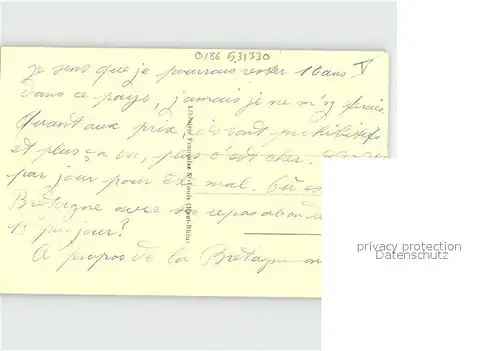 0186 531330
je sens que je pourrais rester 10 ans V
dans ce pays, jamais je ne m'y ferais.
Quant aux prix, ils sont prohibitifs
et plus ça va, plus c'est cher.
par jour pour être mal. Où es
Bretagne avec ses repas abonda
15 par jour?
A propos de la Bretagne
Librairie Française St-Louis (Haut-Rhin)
privacy protection
Datenschutz